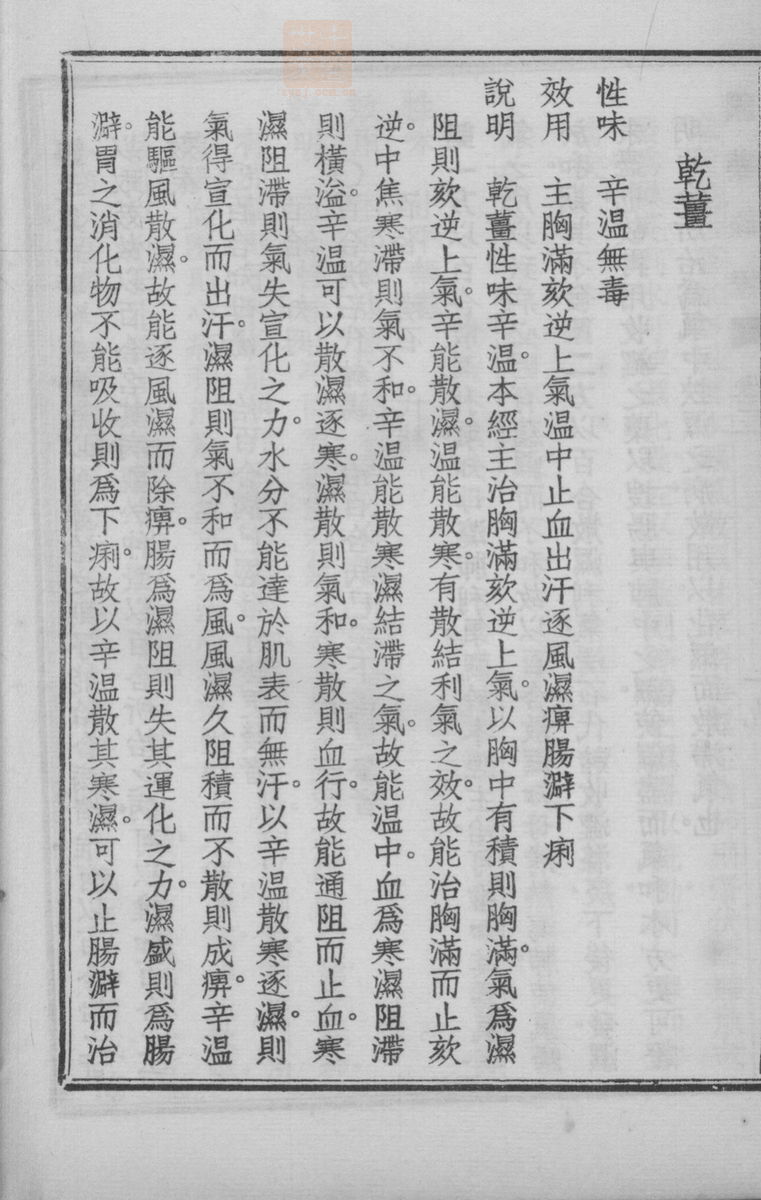 乾薑
性味　辛溫無毒
效用　主胸滿欬逆上氣溫中止血出汗逐風濕痹腸澼下痢
說明　乾薑性味辛溫。本經主治胸滿欬逆上氣。以胸中有積則胸滿。氣爲濕
阻則欬逆上氣。辛能散濕。溫能散寒。有散結利氣之效。故能治胸滿而止欬
逆。中焦寒滯則氣不和。辛溫能散寒濕結滯之氣。故能溫中。血爲寒濕阻滯
則橫溢。辛溫可以散濕逐寒。濕散則氣和。寒散則血行。故能通阻而止血。寒
濕阻滯則氣失宣化之力。水分不能達於肌表而無汗。以辛溫散寒逐濕。則
氣得宣化而出汗。濕阻則氣不和而爲風。風濕久阻積而不散則成痹。辛溫
能驅風散濕。故能逐風濕而除痹。腸爲濕阻則失其運化之力。濕盛則爲腸
澼。胃之消化物不能吸收則爲下痢。故以辛溫散其寒濕。可以止腸澼而治